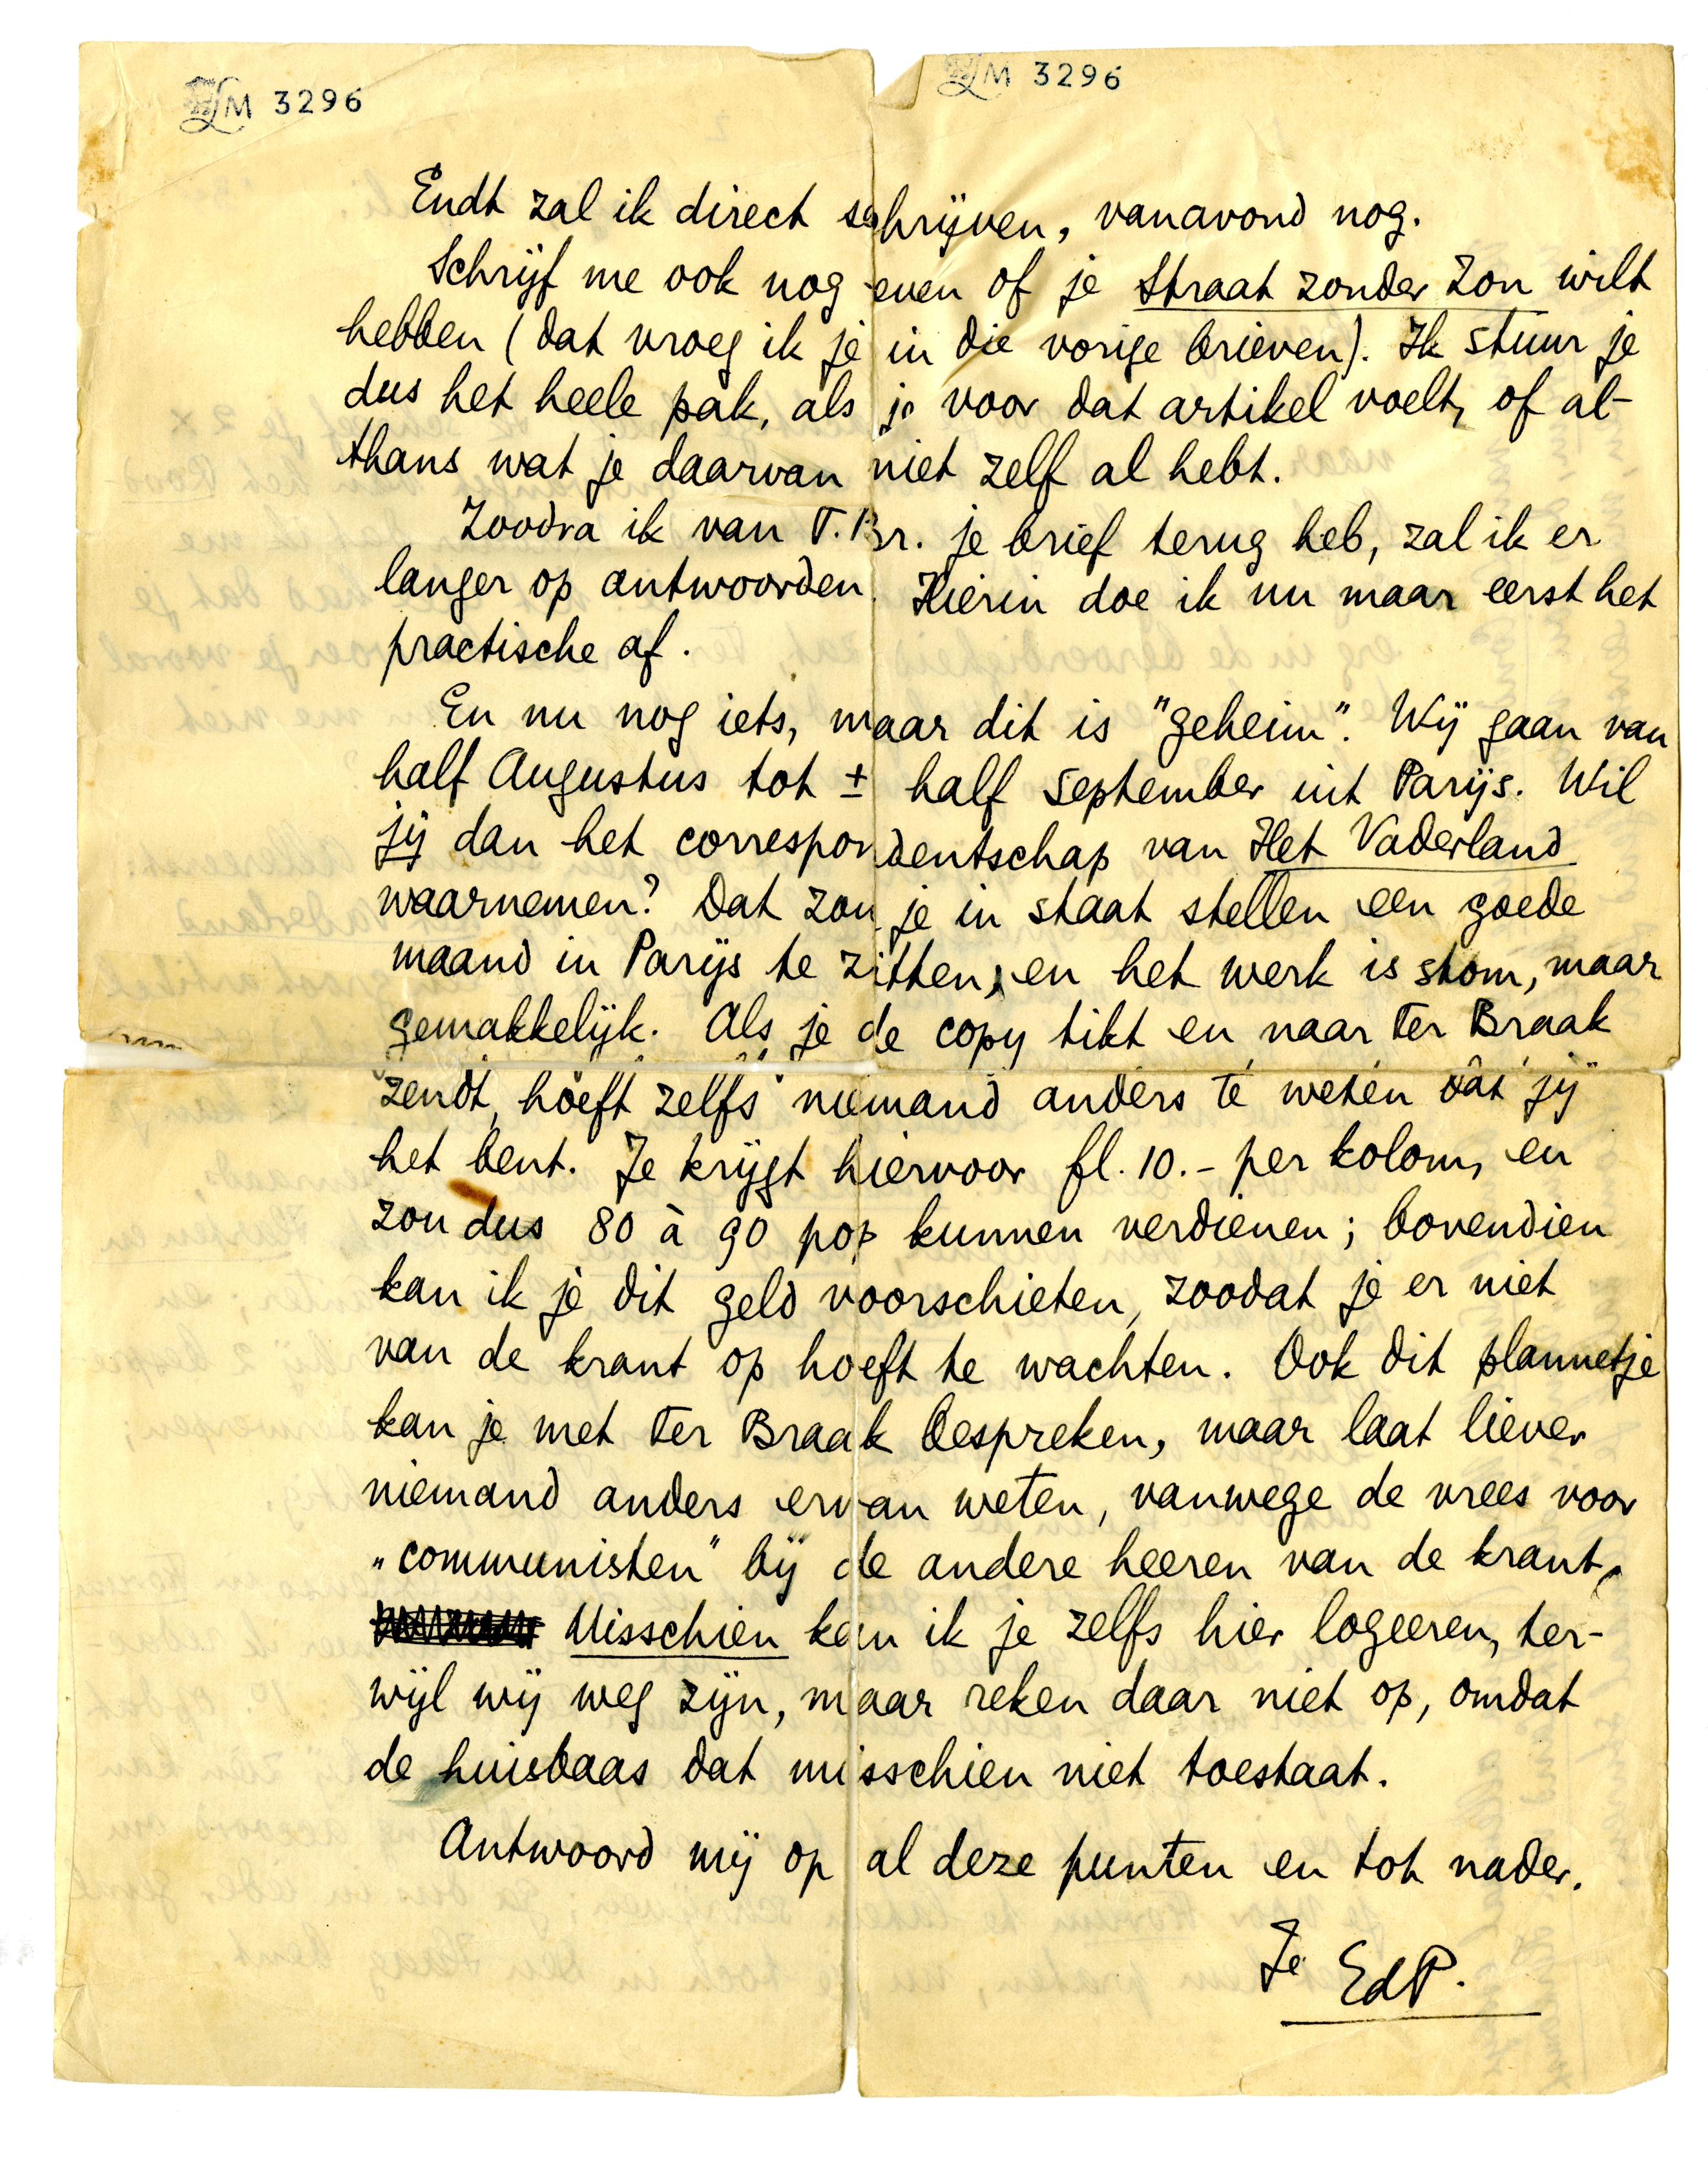 LM 3296
LM 3296
Endt zal ik direct schrijven, vanavond nog.
Schrijf me ook nog even of je Straat zonder Zon wilt
hebben (dat vroeg ik je in die vorige brieven). Ik stuur je
dus het heele pak, als je voor dat artikel voelt, of al-
thans wat je daarvan niet zelf al hebt.
Zoodra ik van T.Br. je brief terug heb, zal ik er
langer op antwoorden. Hierin doe ik nu maar eerst het
practische af.
En nu nog iets, maar dit is "geheim". Wij gaan van
half Augustus tot ± half September uit Parijs. Wil
jij dan het correspondentschap van Het Vaderland
waarnemen? Dat zou je in staat stellen een goede
maand in Parijs te zitten, en het werk is stom, maar
gemakkelijk. Als je de copy tikt en naar ter Braak
zendt, hoeft zelfs niemand anders te weten dat jij
het bent. Je krijgt hiervoor fl. 10.- per kolom, en
zou dus 80 à 90 pop kunnen verdienen; bovendien
kan ik je dit geld voorschieten, zoodat je er niet
van de krant op hoeft te wachten. Ook dit plannetje
kan je met ter Braak bespreken, maar laat liever
niemand anders ervan weten, vanwege de vrees voor
„communisten" bij de andere heeren van de krant.
Misschien kan ik je zelfs hier logeeren, ter-
wijl wij weg zijn, maar reken daar niet op, omdat
de huisbaas dat misschien niet toestaat.
Antwoord mij op al deze punten en tot nader.
Je EdP.